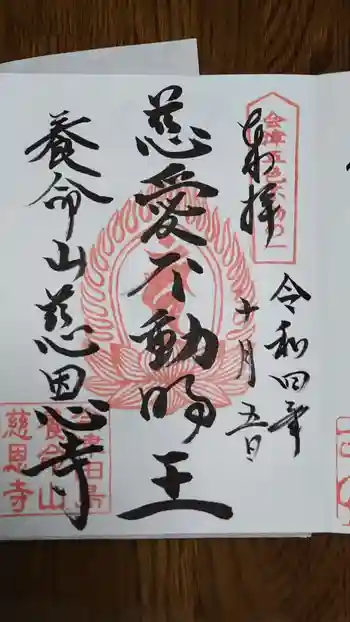 奉拝
令和四年
十月五日
慈愛不動明王
養命山慈恩寺
会津五色不動の一
会津田島
養命山
慈恩寺